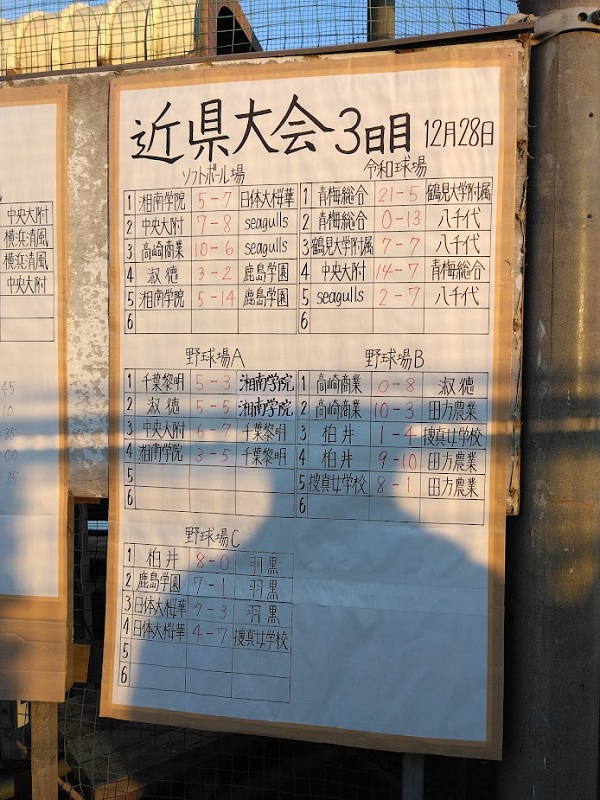 近県大会3日目 12月28日
ソフトボール場
1 湘南学院 5-7 日体大桜華
2 中央大附 7-8 seagulls
3 高崎商業 10-6 seagulls
4 淑徳 3-2 鹿島学園
5 湘南学院 5-14 鹿島学園
6
令和球場
1 青梅総合 21-5 鶴見大学附属
2 青梅総合 0-13 八千代
3 鶴見大学附属 7-7 八千代
4 中央大附 14-7 青梅総合
5 seagulls 2-7 八千代
6
野球場A
1 千葉黎明 5-3 湘南学院
2 淑徳 5-5 湘南学院
3 中央大附 6-7 千葉黎明
4 湘南学院 3-5 千葉黎明
5
6
野球場B
1 高崎商業 0-8 淑徳
2 高崎商業 10-3 田方農業
3 柏井 1-4 捜真女学校
4 柏井 9-10 田方農業
5 捜真女学校 8-1 田方農業
6
野球場C
1 柏井 8-0 羽黒
2 鹿島学園 7-1 羽黒
3 日体大桜華 7-3 羽黒
4 日体大桜華 4-7 捜真女学校
5
6
中央大附
横浜清風
横浜清風
中央大附